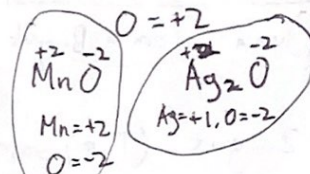 O = +2
+2 -2
MnO
Mn=+2
O=-2
-2
Ag₂O
Ag=+1, O=-2